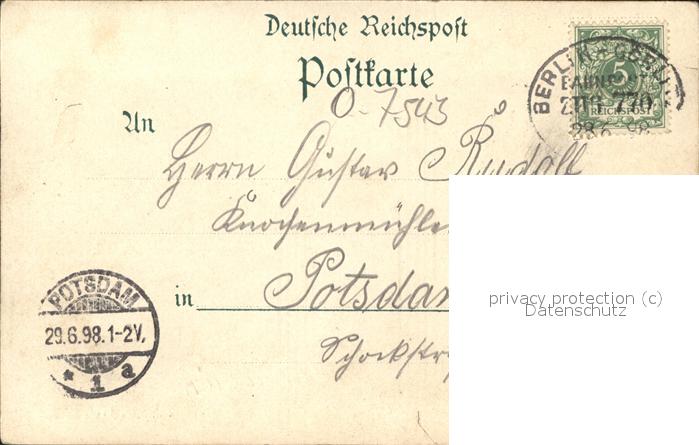 Deutsche Reichspost
Postkarte
O-7543
BERLIN * GÖRLIN
BAHNPOST
ZUG 770
28 6 98
5
REICHSPOST
An
Herrn Gustav Rudolf
Knochenmühle
in Potsdam
POTSDAM
29.6.98.1-2V.
* 1 a
privacy protection (c)
Datenschutz